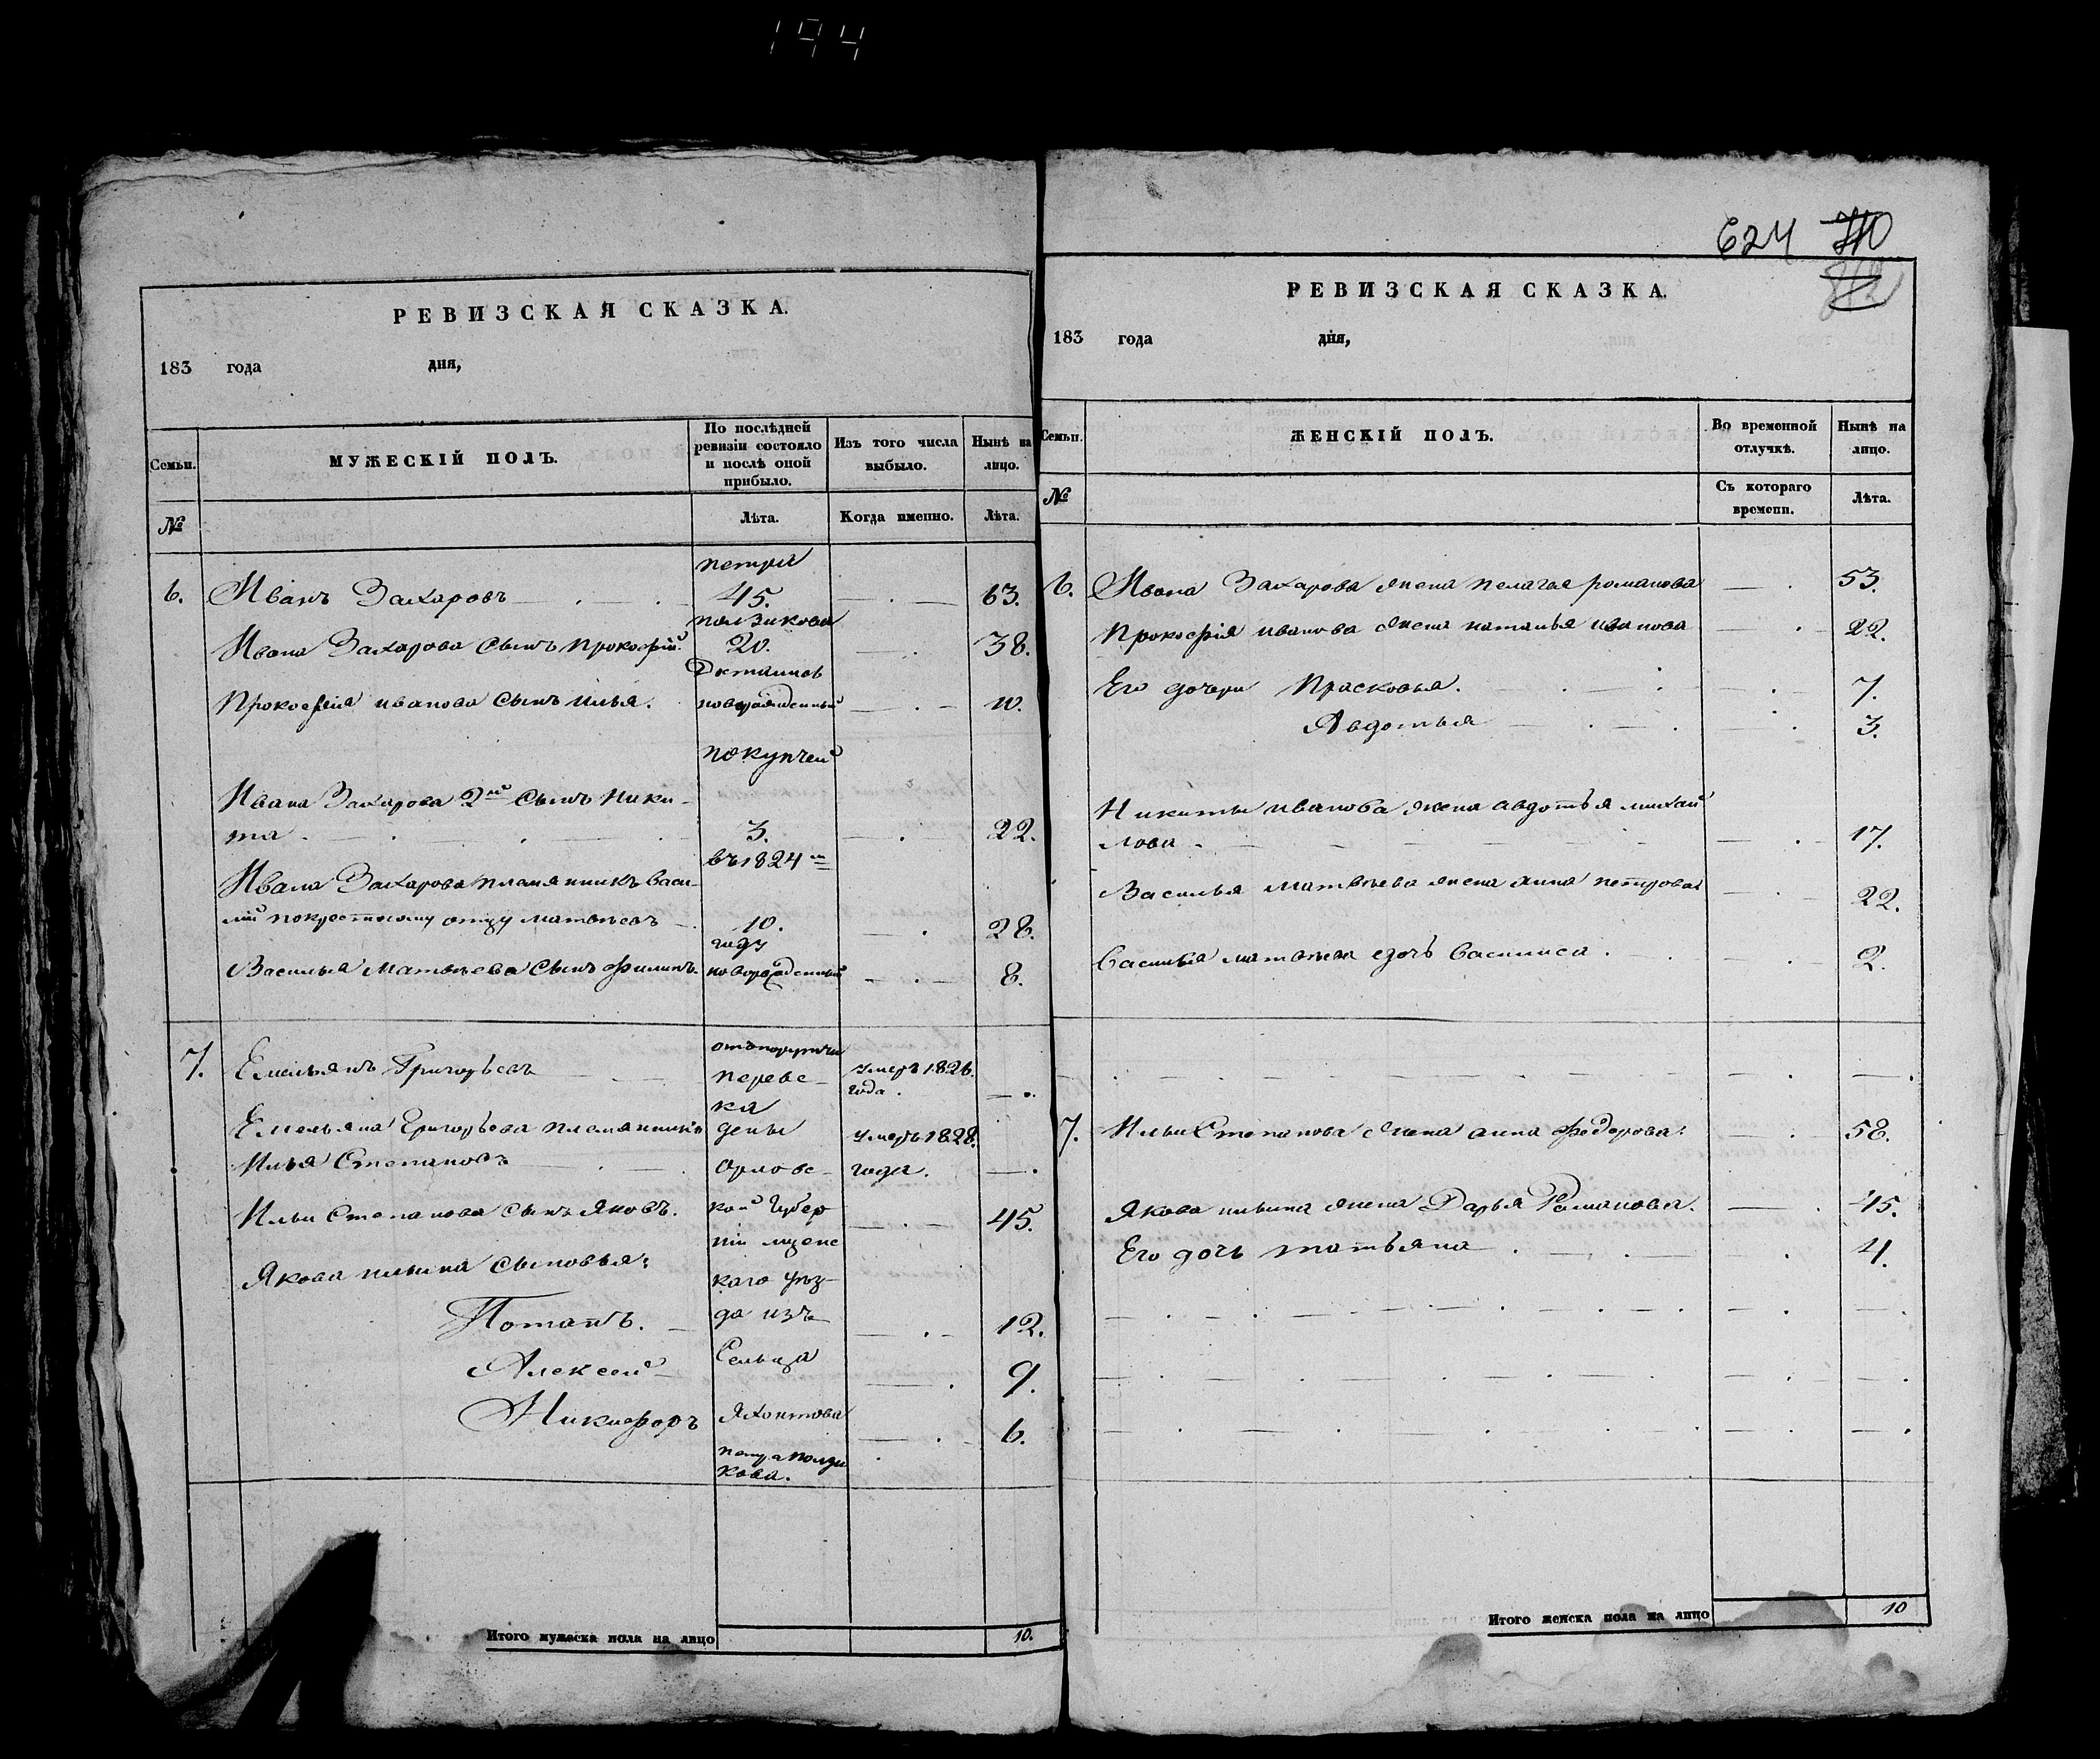 194
РЕВИЗСКАЯ СКАЗКА.
183 года дня,
Семьи.
МУЖЕСКІЙ ПОЛЪ.
По послѣдней ревизіи состояло и послѣ оной прибыло.
Изъ того числа выбыло.
Нынѣ на лицо.
№
Лѣта.
Когда именно.
Лѣта.
петра
6. Иванъ Захаровъ 45. 63.
ползикова
Ивана Захарова сынъ прокофій. 20. 38.
Прокофія иванова сынъ илья. новорожденный 10.
покупчей
Ивана Захарова 2й сынъ ники-
та 3. 22.
въ 1824м
Ивана Захарова племянникъ васи-
лій покрестному отцу матвѣевъ 10. 28.
году
Василья матвѣева сынъ филипъ. новорожденный 8.
7. Емельянъ Григорьевъ
переве- умеръ 1826.
года.
ка
Емельяна Григорьева племянникъ дены умеръ 1828.
Илья Степановъ орловс- года.
Ильи Степанова сынъ Яковъ. кой Губер 45.
ніи мценс
Якова ильина сыновья: каго уѣз-
Потапъ. да изъ 12.
Алексей Сельца 9.
Никифоръ Яхонтова 6.
петра ползи
кова.
Итого мужеска пола на лицо 10.
624
РЕВИЗСКАЯ СКАЗКА.
183 года дня,
Семьи.
ЖЕНСКІЙ ПОЛЪ.
Во временной отлучкѣ.
Нынѣ на лицо.
№
Съ котораго времени.
Лѣта.
6. Ивана Захарова жена пелагья романова 53.
Прокофія иванова жена наталья иванова 22.
Его дочери Прасковья. 7.
Авдотья 3.
Никиты иванова жена авдотья михай
лова 17.
Василья матвѣева жена анна петрова 22.
василья матвѣева дочь василиса 2.
7. Ильи Степанова жена анна федорова. 58.
Якова ильина жена Дарья Романова. 45.
Его дочь татьяна 4.
Итого женска пола на лицо 10